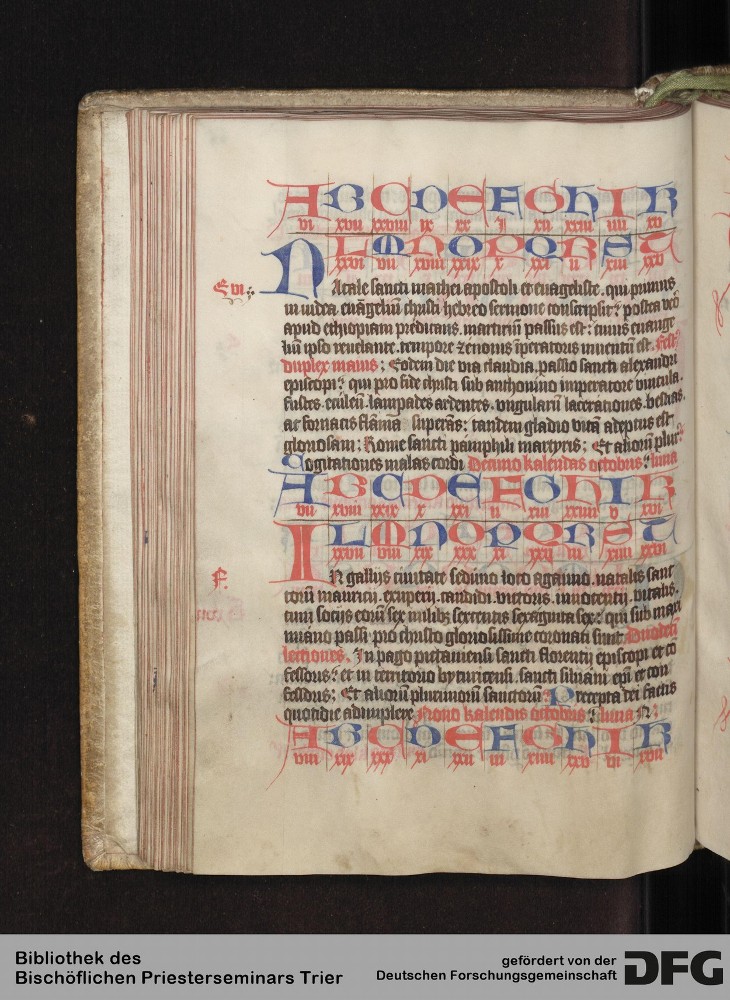 A B C D E F G H I K
vi xvii xxviii ix xx I xii xxiii iiii xv
L M N O P Q R S T
xxvi vii xviii xxix x xxi ii xiii xxv
E vi
Natale sancti mathei apostoli et euãgeliste. qui primus
in iudea euãgeliũ christi hebreo sermone conscripsit: postea vero
apud ethiopiam predicans. martiriũ passus est: cuius euange
liũ ipso reuelante. tempore zenonis ĩperatoris inuentũ est. Fest
duplex maius; Eodem die via claudia. passio sancti alexandri
episcopi: qui pro fide christi sub anthonino imperatore vincula.
fustes. eculeũ. lampades ardentes. vngularũ lacerationes. bestias.
ac fornacis flãmã superãs: tandem gladio vitã adeptus est
gloriosam; Rome sancti pamphili martyris; Et aliorũ plur
Cogitationes malas cordi Decimo kalendas octobris: luna
A B C D E F G H I K
vii xviii xxix x xxi ii xiii xxiiii v xvi
L M N O P Q R S T
xxvii viii xix xxx xi xxij iii xiiii xxvi
F.
In gallijs ciuitate seduno loco agauno. natalis sanc
torũ mauricii. exuperii. candidi. victoris. innocentii. vitalis.
cum socijs eorũ sex milibz sexcentis sexaginta sex: qui sub maxi
miano passi pro christo gloriosissime coronati sunt. Duodeci
lectiones. In pago pictauiensi sancti florentij episcopi et cõ
fessoris: et in territorio byturicensi. sancti siluani epi et con
fessoris; Et aliorũ plurimorũ sanctorũ: Precepta dei factis
quotidie adimplere Nono kalendis octobris: luna
A B C D E F G H I K
viii xix xxx xi xxii iii xiiii xxv vi xvii
Bibliothek des
Bischöflichen Priesterseminars Trier
gefördert von der
Deutschen Forschungsgemeinschaft DFG